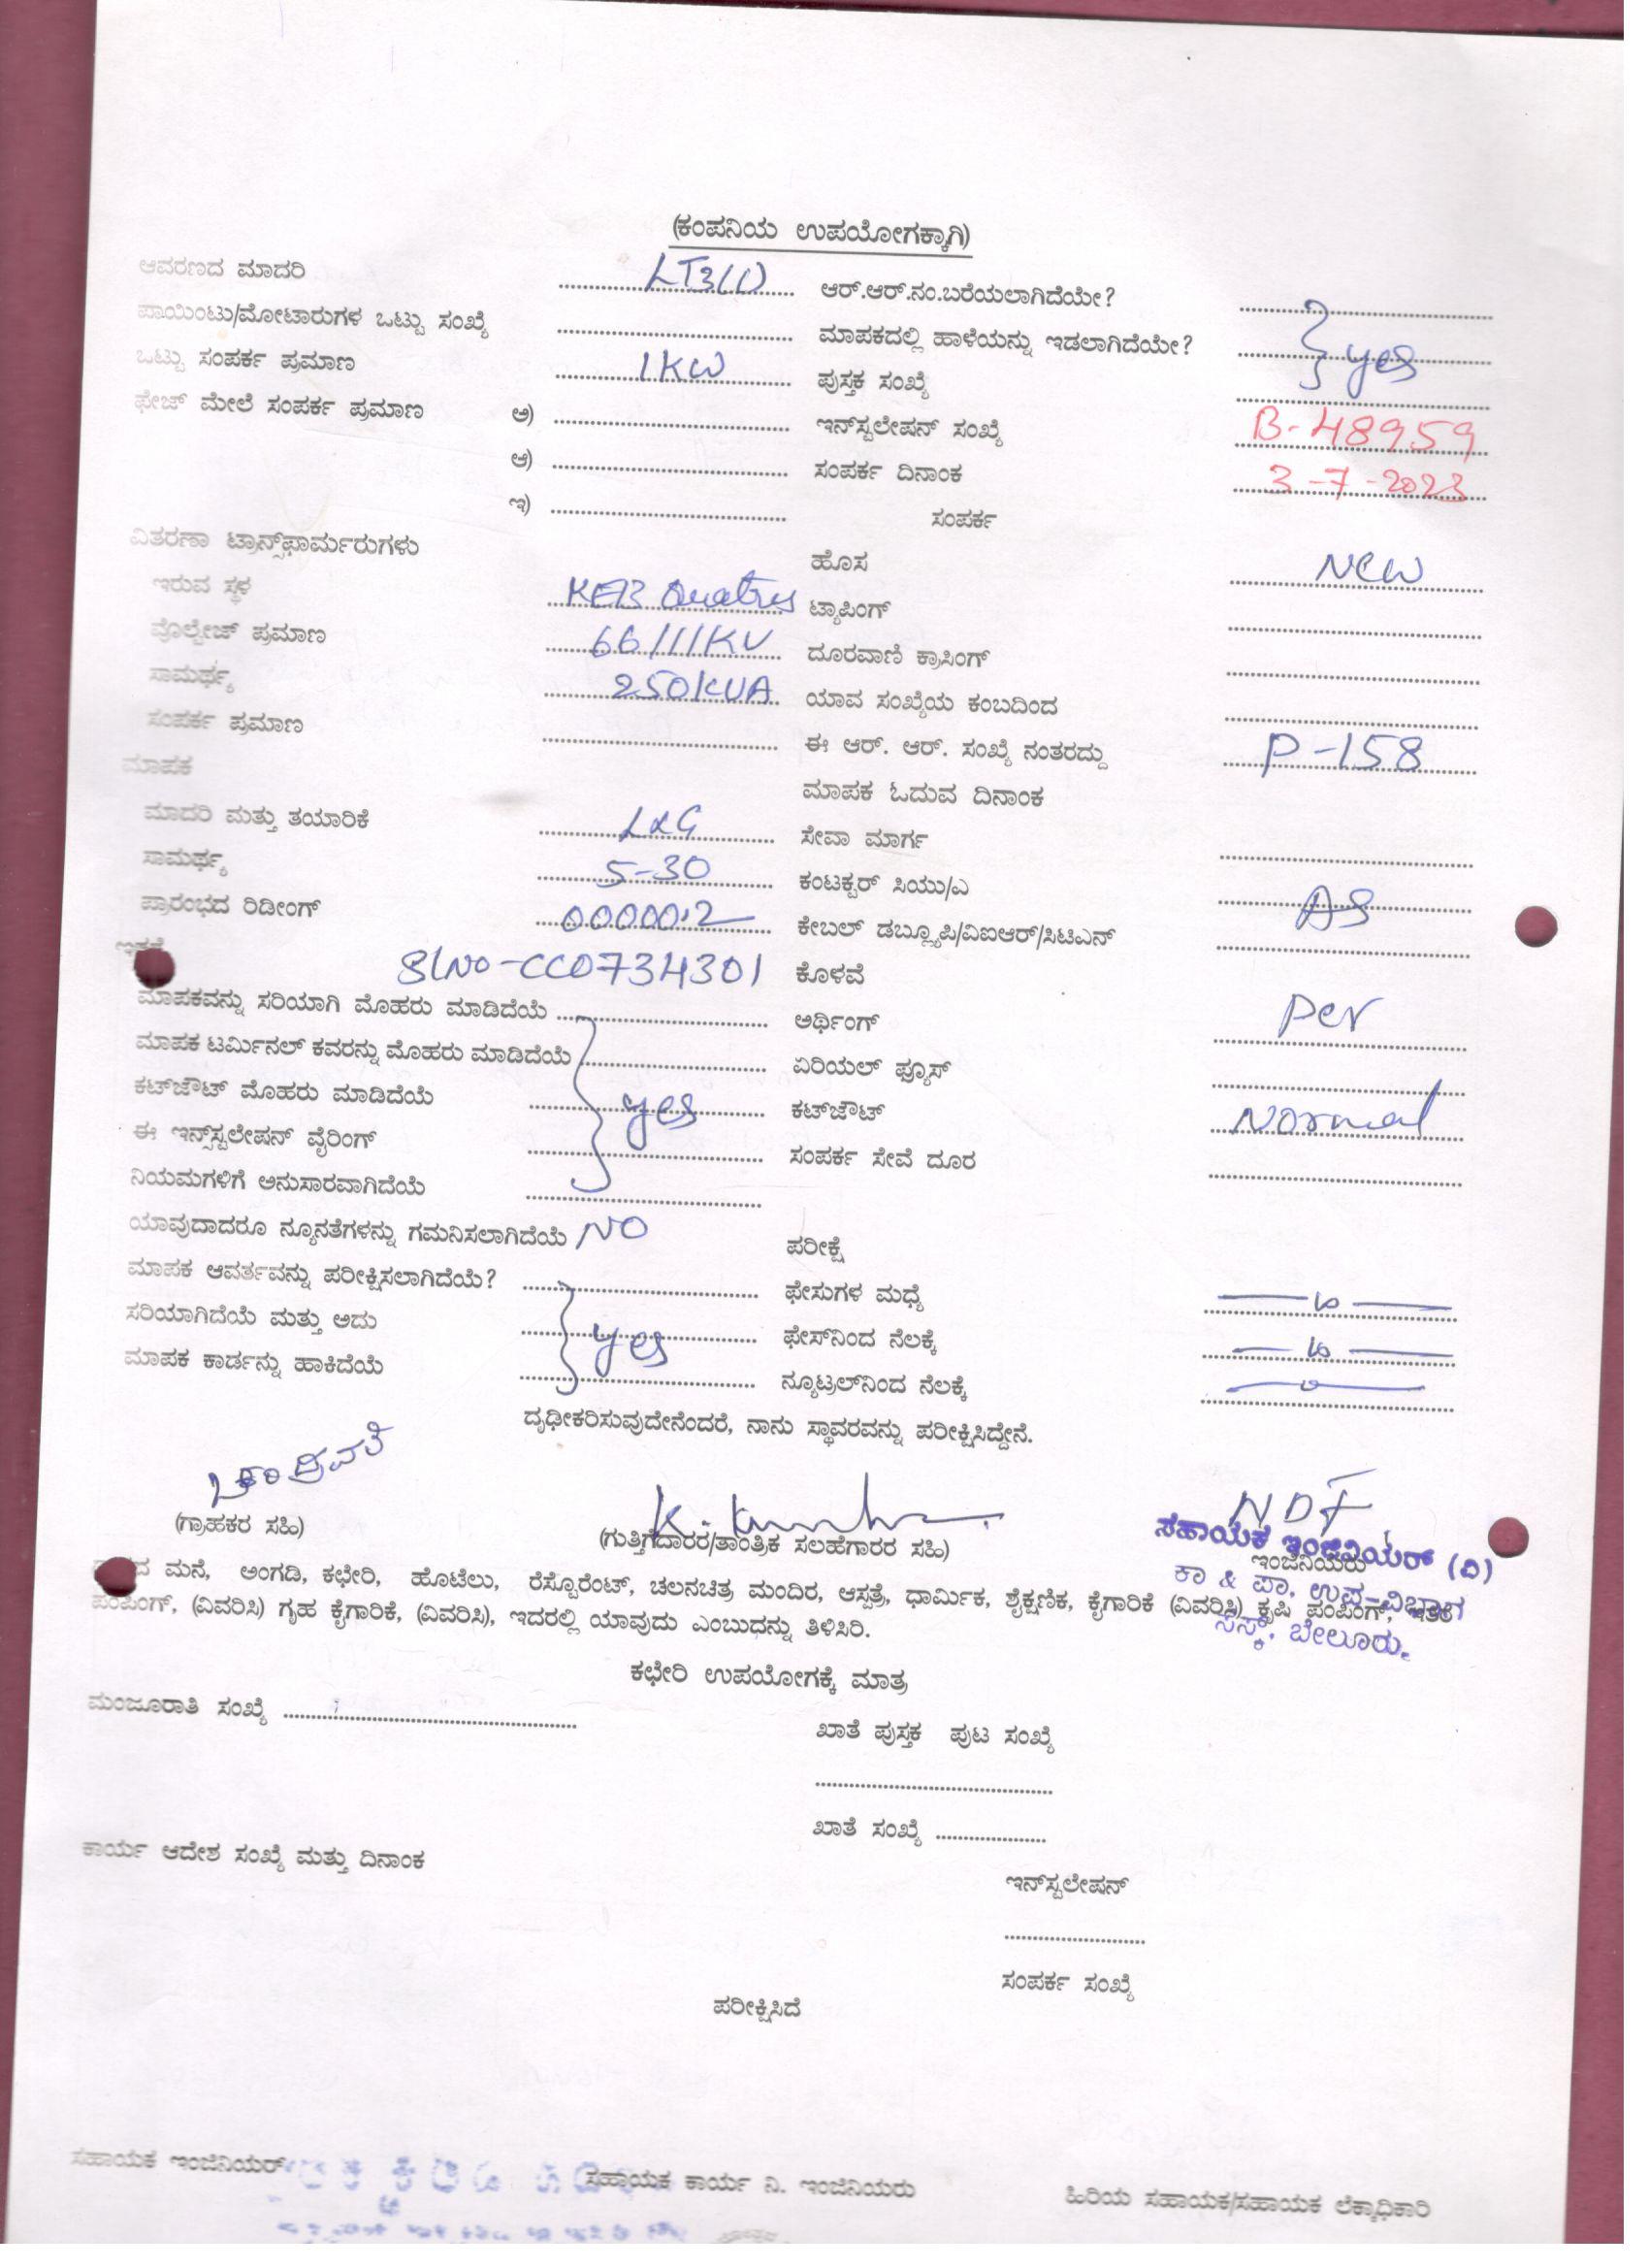 (ಕಂಪನಿಯ ಉಪಯೋಗಕ್ಕಾಗಿ)
ಆವರಣದ ಮಾದರಿ LT3(1) ಆರ್.ಆರ್.ನಂ.ಬರೆಯಲಾಗಿದೆಯೇ?
ಪಾಯಿಂಟು/ಮೋಟಾರುಗಳ ಒಟ್ಟು ಸಂಖ್ಯೆ ಮಾಪಕದಲ್ಲಿ ಹಾಳೆಯನ್ನು ಇಡಲಾಗಿದೆಯೇ? yes
ಒಟ್ಟು ಸಂಪರ್ಕ ಪ್ರಮಾಣ 1KW ಪುಸ್ತಕ ಸಂಖ್ಯೆ
ಫೇಜ್ ಮೇಲೆ ಸಂಪರ್ಕ ಪ್ರಮಾಣ ಅ) ಇನ್‌ಸ್ಟಲೇಷನ್ ಸಂಖ್ಯೆ B-48959
ಆ) ಸಂಪರ್ಕ ದಿನಾಂಕ 3-7-2023
ಇ) ಸಂಪರ್ಕ
ವಿತರಣಾ ಟ್ರಾನ್ಸ್‌ಫಾರ್ಮರುಗಳು ಹೊಸ New
ಇರುವ ಸ್ಥಳ KEB ಟ್ಯಾಪಿಂಗ್
ವೊಲ್ಟೇಜ್ ಪ್ರಮಾಣ 66/11KV ದೂರವಾಣಿ ಕ್ರಾಸಿಂಗ್
ಸಾಮರ್ಥ್ಯ 250KVA ಯಾವ ಸಂಖ್ಯೆಯ ಕಂಬದಿಂದ
ಸಂಪರ್ಕ ಪ್ರಮಾಣ ಈ ಆರ್. ಆರ್. ಸಂಖ್ಯೆ ನಂತರದ್ದು P-158
ಮಾಪಕ ಮಾಪಕ ಓದುವ ದಿನಾಂಕ
ಮಾದರಿ ಮತ್ತು ತಯಾರಿಕೆ L&G ಸೇವಾ ಮಾರ್ಗ
ಸಾಮರ್ಥ್ಯ 5-30 ಕಂಟಕ್ಟರ್ ಸಿಯು/ಎ
ಪ್ರಾರಂಭದ ರಿಡೀಂಗ್ 00000.2 ಕೇಬಲ್ ಡಬ್ಲ್ಯೂಪಿ/ವಿಐಆರ್/ಸಿಟಿಎನ್
SlNo-CC0734301 ಕೊಳವೆ
ಮಾಪಕವನ್ನು ಸರಿಯಾಗಿ ಮೊಹರು ಮಾಡಿದೆಯೆ ಅರ್ಥಿಂಗ್ Per
ಮಾಪಕ ಟರ್ಮಿನಲ್ ಕವರನ್ನು ಮೊಹರು ಮಾಡಿದೆಯೆ ಏರಿಯಲ್ ಫ್ಯೂಸ್
ಕಟ್‌ಔಟ್ ಮೊಹರು ಮಾಡಿದೆಯೆ yes ಕಟ್‌ಔಟ್ Normal
ಈ ಇನ್ಸ್‌ಸ್ಟಲೇಷನ್ ವೈರಿಂಗ್ ಸಂಪರ್ಕ ಸೇವೆ ದೂರ
ನಿಯಮಗಳಿಗೆ ಅನುಸಾರವಾಗಿದೆಯೆ
ಯಾವುದಾದರೂ ನ್ಯೂನತೆಗಳನ್ನು ಗಮನಿಸಲಾಗಿದೆಯೆ NO ಪರೀಕ್ಷೆ
ಮಾಪಕ ಆವರ್ತವನ್ನು ಪರೀಕ್ಷಿಸಲಾಗಿದೆಯೆ? ಫೇಸುಗಳ ಮಧ್ಯೆ
ಸರಿಯಾಗಿದೆಯೆ ಮತ್ತು ಅದು yes ಫೇಸ್‌ನಿಂದ ನೆಲಕ್ಕೆ
ಮಾಪಕ ಕಾರ್ಡನ್ನು ಹಾಕಿದೆಯೆ ನ್ಯೂಟ್ರಲ್‌ನಿಂದ ನೆಲಕ್ಕೆ
ದೃಢೀಕರಿಸುವುದೇನೆಂದರೆ, ನಾನು ಸ್ಥಾವರವನ್ನು ಪರೀಕ್ಷಿಸಿದ್ದೇನೆ.
(ಗ್ರಾಹಕರ ಸಹಿ) (ಗುತ್ತಿಗೆದಾರರ/ತಾಂತ್ರಿಕ ಸಲಹೆಗಾರರ ಸಹಿ) ಇಂಜಿನಿಯರು
ಸಹಾಯಕ ಇಂಜಿನಿಯರ್ (ವಿ)
ಕಾ & ಪಾ, ಉಪ-ವಿಭಾಗ
ಬೇಲೂರು.
ಮನೆ, ಅಂಗಡಿ, ಕಛೇರಿ, ಹೊಟೆಲು, ರೆಸ್ಟೊರೆಂಟ್, ಚಲನಚಿತ್ರ ಮಂದಿರ, ಆಸ್ಪತ್ರೆ, ಧಾರ್ಮಿಕ, ಶೈಕ್ಷಣಿಕ, ಕೈಗಾರಿಕೆ (ವಿವರಿಸಿ) ಕೃಷಿ ಪಂಪಿಂಗ್, ಇತರೆ
ಪಂಪಿಂಗ್, (ವಿವರಿಸಿ) ಗೃಹ ಕೈಗಾರಿಕೆ, (ವಿವರಿಸಿ), ಇದರಲ್ಲಿ ಯಾವುದು ಎಂಬುದನ್ನು ತಿಳಿಸಿರಿ.
ಕಛೇರಿ ಉಪಯೋಗಕ್ಕೆ ಮಾತ್ರ
ಮಂಜೂರಾತಿ ಸಂಖ್ಯೆ ಖಾತೆ ಪುಸ್ತಕ ಪುಟ ಸಂಖ್ಯೆ
ಖಾತೆ ಸಂಖ್ಯೆ
ಕಾರ್ಯ ಆದೇಶ ಸಂಖ್ಯೆ ಮತ್ತು ದಿನಾಂಕ
ಇನ್‌ಸ್ಟಲೇಷನ್
ಸಂಪರ್ಕ ಸಂಖ್ಯೆ
ಪರೀಕ್ಷಿಸಿದೆ
ಸಹಾಯಕ ಇಂಜಿನಿಯರ್ ಸಹಾಯಕ ಕಾರ್ಯ ನಿ. ಇಂಜಿನಿಯರು ಹಿರಿಯ ಸಹಾಯಕ/ಸಹಾಯಕ ಲೆಕ್ಕಾಧಿಕಾರಿ